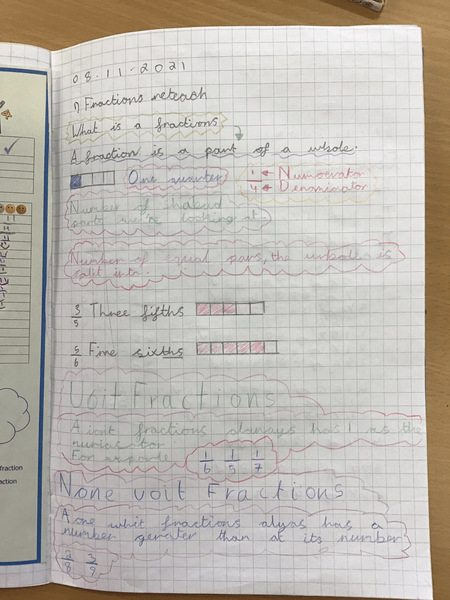 08.11.2021
Fractions reteach
What is a fractions
A fraction is a part of a whole.
One quarter
1 Numerator
4 Denominator
Number of shaded
parts we're looking at
Number of equal pars, the whole is
split into.
3/5 Three fifths
5/6 Five sixths
Unit Fractions
A iont fractions always has 1 as the
For
1/6 1/5 1/7
None voit Fractions
A one whit fractions alyas has a
number gerater than at its number
3/9
fraction
action